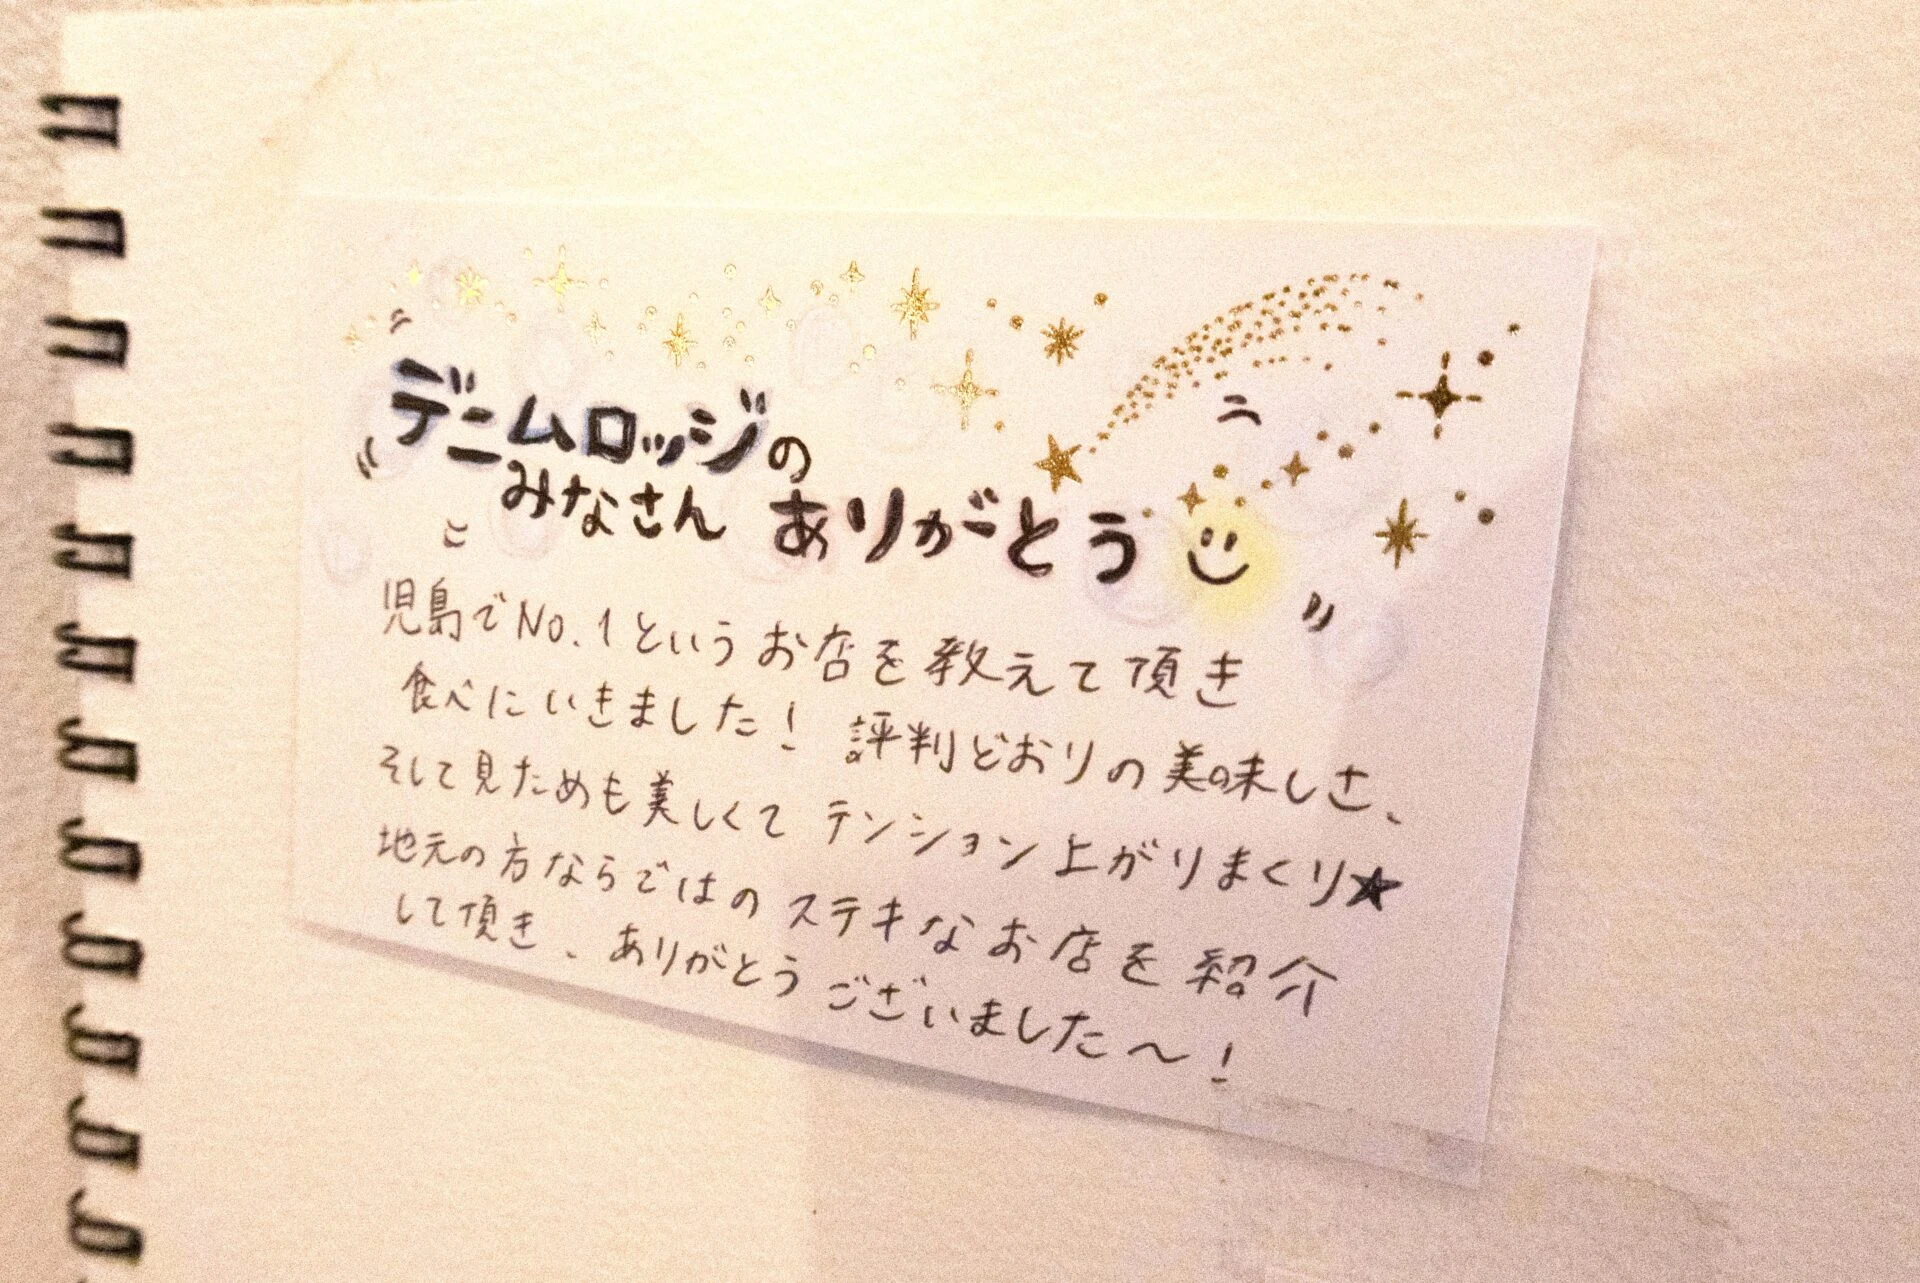 デニムロッジの
みなさん ありがとう
児島でNo.1というお店を教えて頂き
食べにいきました! 評判どおりの美味しさ、
そして見ためも美しくてテンション上がりまくり★
地元の方ならではのステキなお店を紹介
して頂き、ありがとうございました〜!